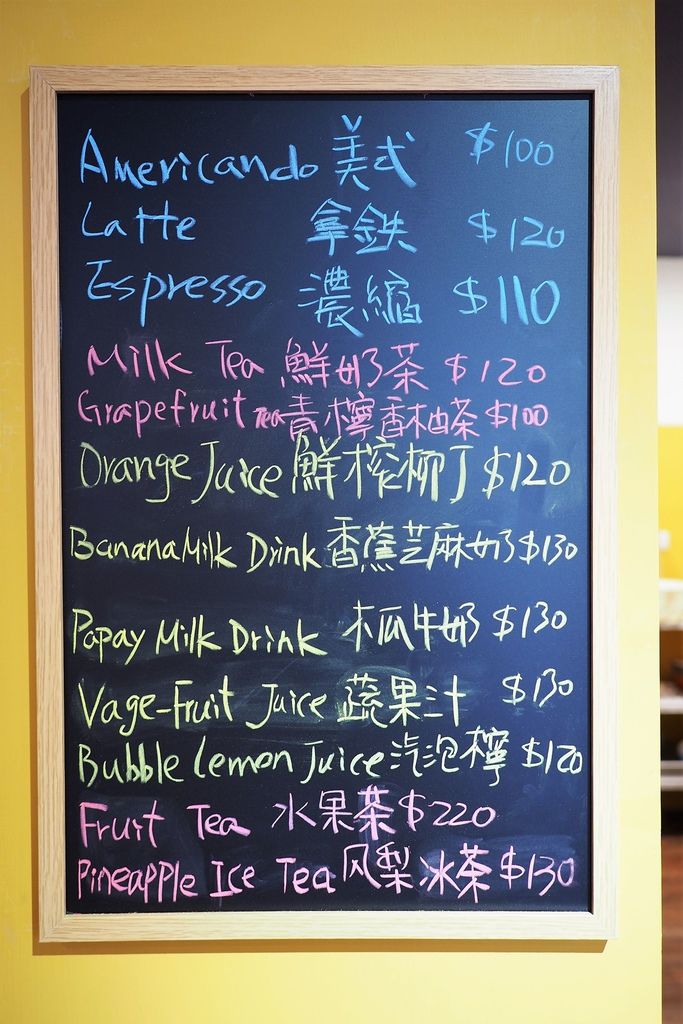 Americando 美式 $100
Latte 拿鉄 $120
Espresso 濃縮 $110
Milk Tea 鮮奶茶 $120
Grapefruit Tea 青檸香柚茶 $100
Orange Juice 鮮榨柳丁 $120
Banana Milk Drink 香蕉芝麻奶 $130
Papay Milk Drink 木瓜牛奶 $130
Vage-Fruit Juice 蔬果汁 $130
Bubble Lemon Juice 汽泡檸 $120
Fruit Tea 水果茶 $220
Pineapple Ice Tea 风梨冰茶 $130